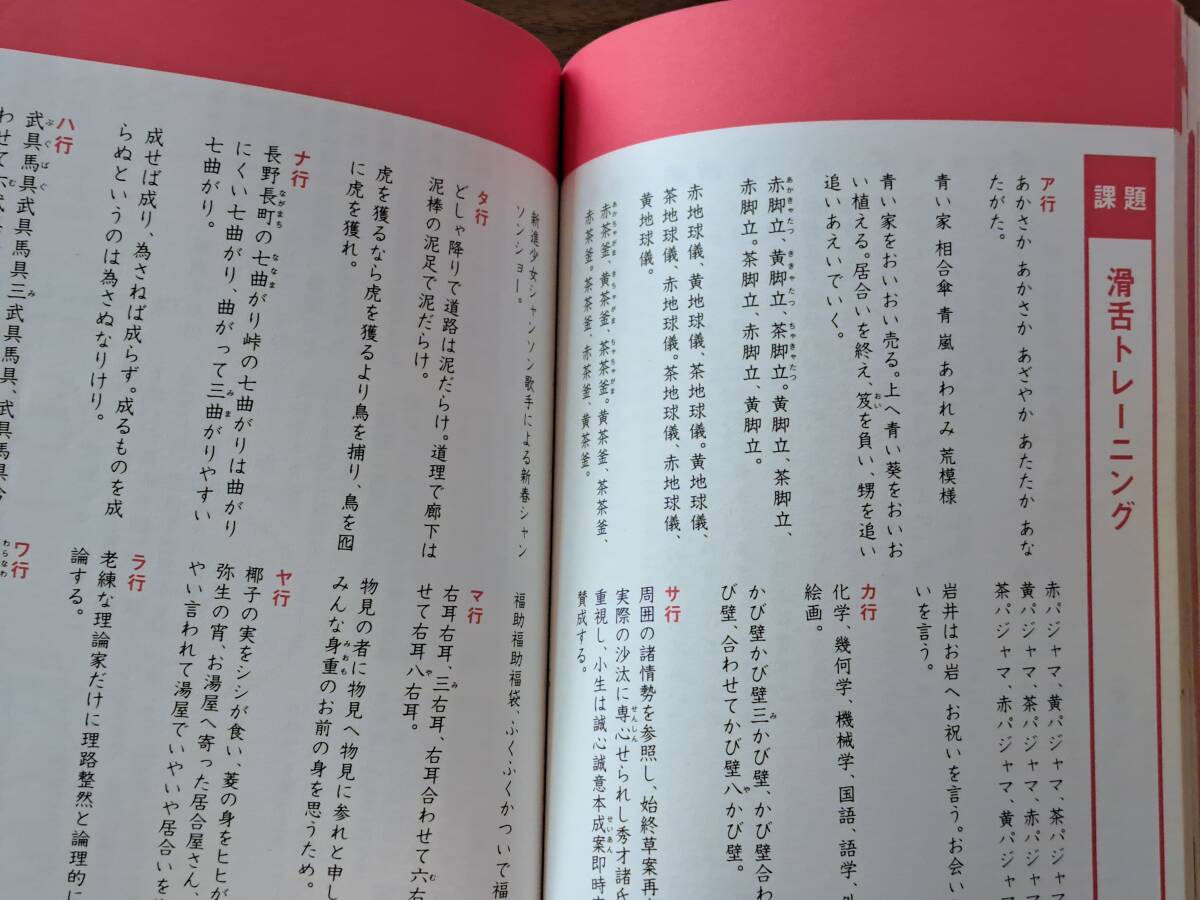 課題
滑舌トレーニング
ア行
あかさか あかさか あざやか あたたか あな
たがた。
青い家 相合傘 青嵐 あわれみ 荒模様
青い家をおいおい売る。上へ青い葵をおいお
い植える。居合いを終え、笈を負い、甥を追い
追いあえいでいく。
赤脚立、黄脚立、茶脚立。黄脚立、茶脚立、
赤脚立。茶脚立、赤脚立、黄脚立。
赤地球儀、黄地球儀、茶地球儀。黄地球儀、
茶地球儀、赤地球儀。茶地球儀、赤地球儀、
黄地球儀。
赤茶釜、黄茶釜、茶茶釜。黄茶釜、茶茶釜、
赤茶釜。茶茶釜、赤茶釜、黄茶釜。
赤パジャマ、黄パジャマ、茶パジャ
黄パジャマ、茶パジャマ、赤パジャ
茶パジャマ、赤パジャマ、黄パジャ
岩井はお岩へお祝いを言う。お会い
いを言う。
カ行
化学、幾何学、機械学、国語、語学、
絵画。
かび壁かび壁三かび壁、かび壁合わ
び壁、合わせてかび壁八かび壁。
サ行
周囲の諸情勢を参照し、始終草案再
実際の沙汰に専心せられし秀才諸氏
重視し、小生は誠心誠意本成案即時
賛成する。
新進少女シャンソン歌手による新春シャン
ソンショー。
タ行
どしゃ降りで道路は泥だらけ。道理で廊下は
泥棒の泥足で泥だらけ。
虎を獲るなら虎を獲るより鳥を捕り、鳥を囮
に虎を獲れ。
ナ行
長野長町の七曲がり峠の七曲がりは曲がり
にくい七曲がり、曲がって三曲がりやすい
七曲がり。
成せば成り、為さねば成らず。成るものを成
らぬというのは為さぬなりけり。
ハ行
武具馬具武具馬具三武具馬具、武具馬具合
わせて六武
福助福助福袋、ふくふくかついで福
マ行
右耳右耳、三右耳、右耳合わせて六右
せて右耳八右耳。
物見の者に物見へ物見に参れと申し
みんな身重のお前の身を思うため。
ヤ行
椰子の実をシシが食い、菱の身をヒヒが
弥生の宵、お湯屋へ寄った居合屋さん、
やい言われて湯屋でいやいや居合いを
ラ行
老練な理論家だけに理路整然と論理的に
論する。
ワ行